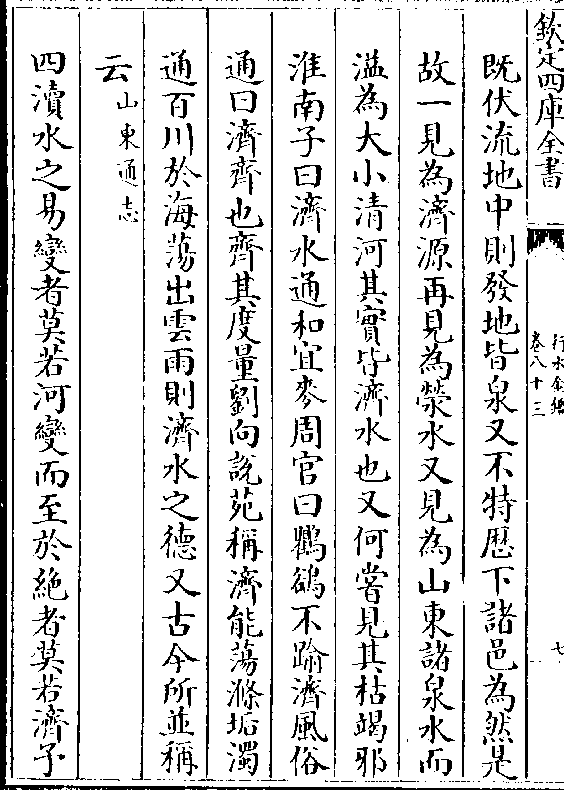 欽定四庫全書
行水金鑑
卷八十三
七
既伏流地中則發地皆泉又不特歴下諸邑為然是
故一見為濟源再見為滎水又見為山東諸泉水而
溢為大小清河其實皆濟水也又何嘗見其枯竭邪
淮南子曰濟水通和宜麥周官曰鸜鵒不踰濟風俗
通曰濟齊也齊其度量劉向説苑稱濟能蕩滌垢濁
通百川於海蕩出雲雨則濟水之德又古今所並稱
云山東通志
四瀆水之易變者莫若河變而至於絶者莫若濟予